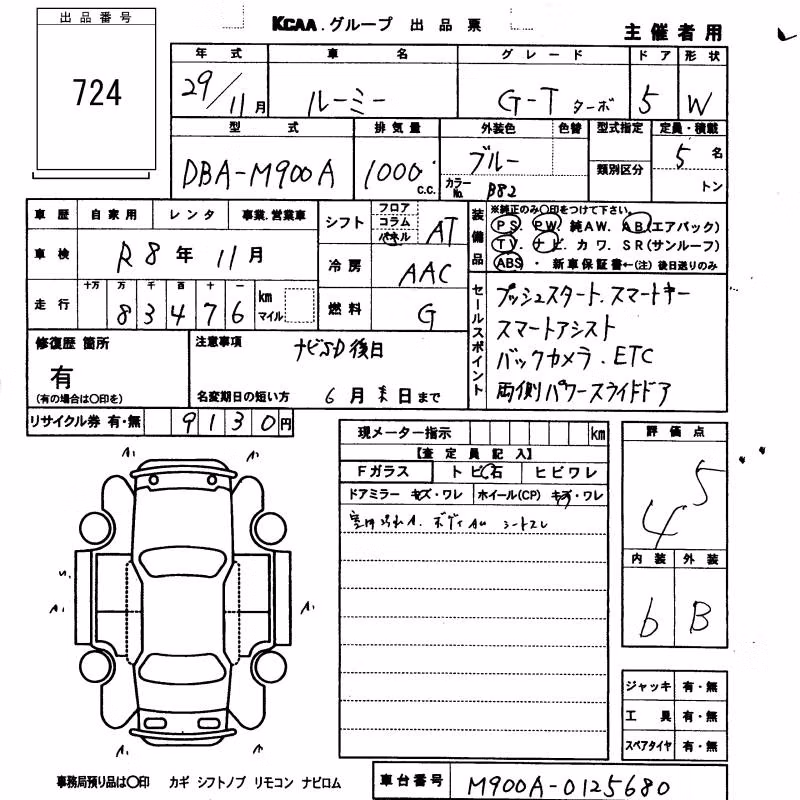 出品番号
724
KCAA.グループ 出品票
主催者用
年式 車名 グレード ドア 形状
29/11月 ルーミー G-T ターボ 5 W
型式 排気量 外装色 色替 型式指定 定員・積載
DBA-M900A 1000 c.c. ブルー 5名
カラーNo. B82 類別区分 トン
車歴 自家用 レンタ 事業.営業車
シフト フロア コラム パネル AT
装備品 ※純正のみ○印をつけて下さい。
PS. PW. 純AW. AB(エアバック)
TV. ナビ. カワ. SR(サンルーフ)
ABS ・ 新車保証書←(注) 後日送りのみ
車検 R8年 11月
冷房 AAC
走行 十万 万 千 百 十 一
83476 km マイル
燃料 G
セールスポイント
プッシュスタート. スマートキー
スマートアシスト
バックカメラ. ETC
両側パワースライドドア
修復歴 箇所
有
(有の場合は○印を)
注意事項
ナビSD後日
名変期日の短い方 6月末日まで
リサイクル券 有・無 9130円
現メーター指示 km
【査定員記入】
Fガラス トビ石 ヒビワレ
ドアミラー キズ・ワレ ホイール(CP) キズ・ワレ
A. ボディAU シートスレ
評価点
4.5
内装 外装
b B
ジャッキ 有・無
工具 有・無
スペアタイヤ 有・無
事務局預り品は○印 カギ シフトノブ リモコン ナビロム
車台番号 M900A-0125680